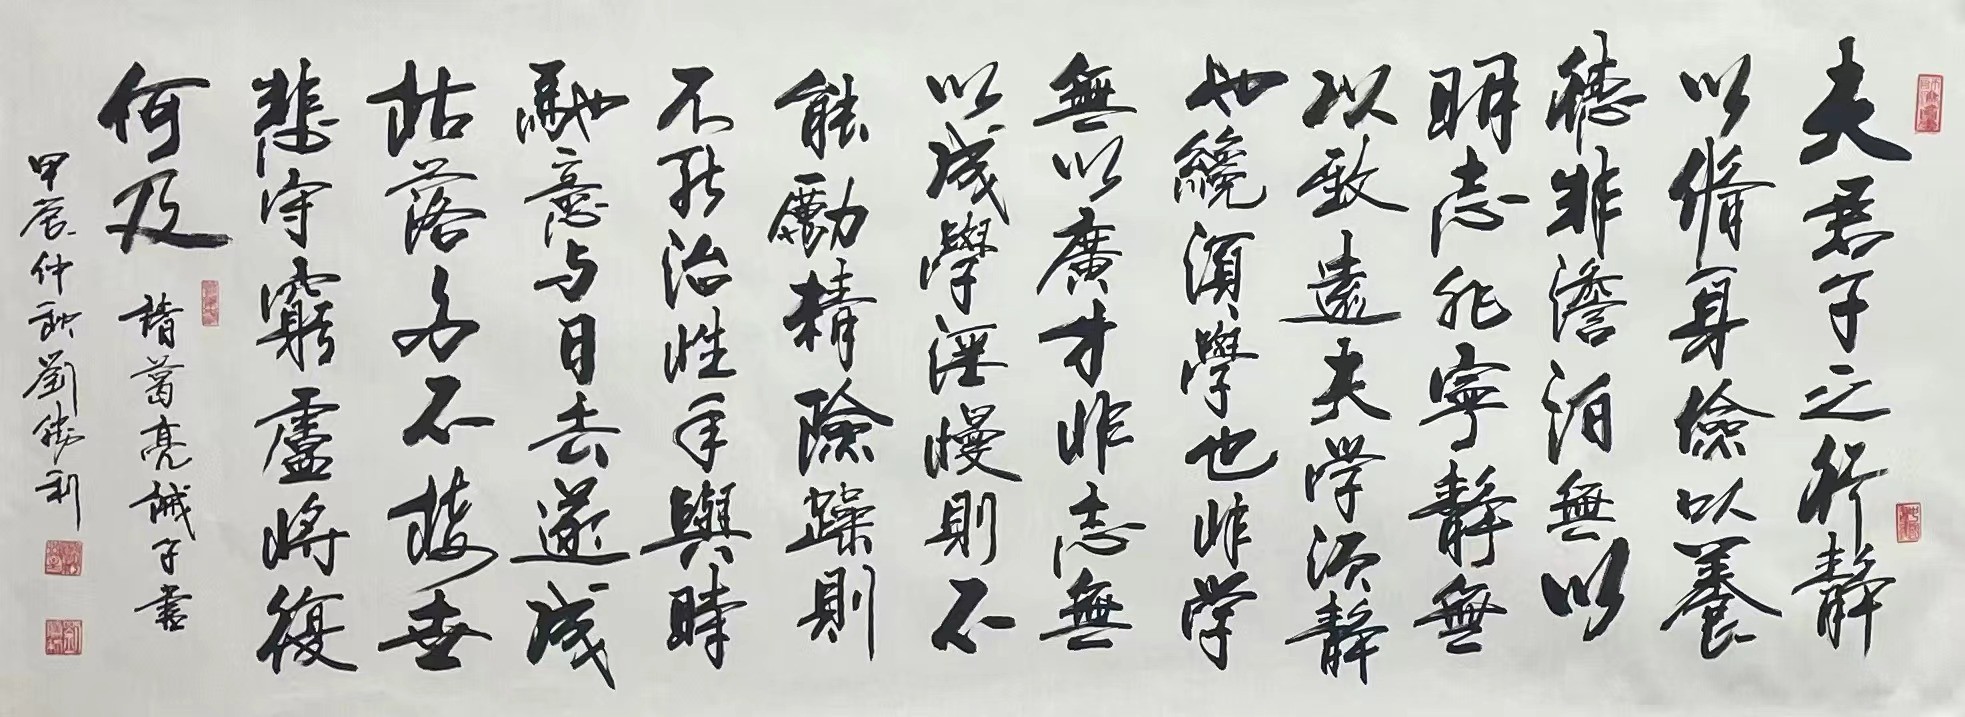 夫君子之行靜
以脩身儉以養
德非澹泊無以
明志非寧靜無
以致遠夫学須靜
也纔須學也非学
無以廣才非志無
以成學淫慢則不
能勵精險躁則
不能治性年與時
馳意与日去遂成
枯落多不接世
悲守窮盧將復
何及
諸葛亮誡子書
甲辰仲秋劉勝利